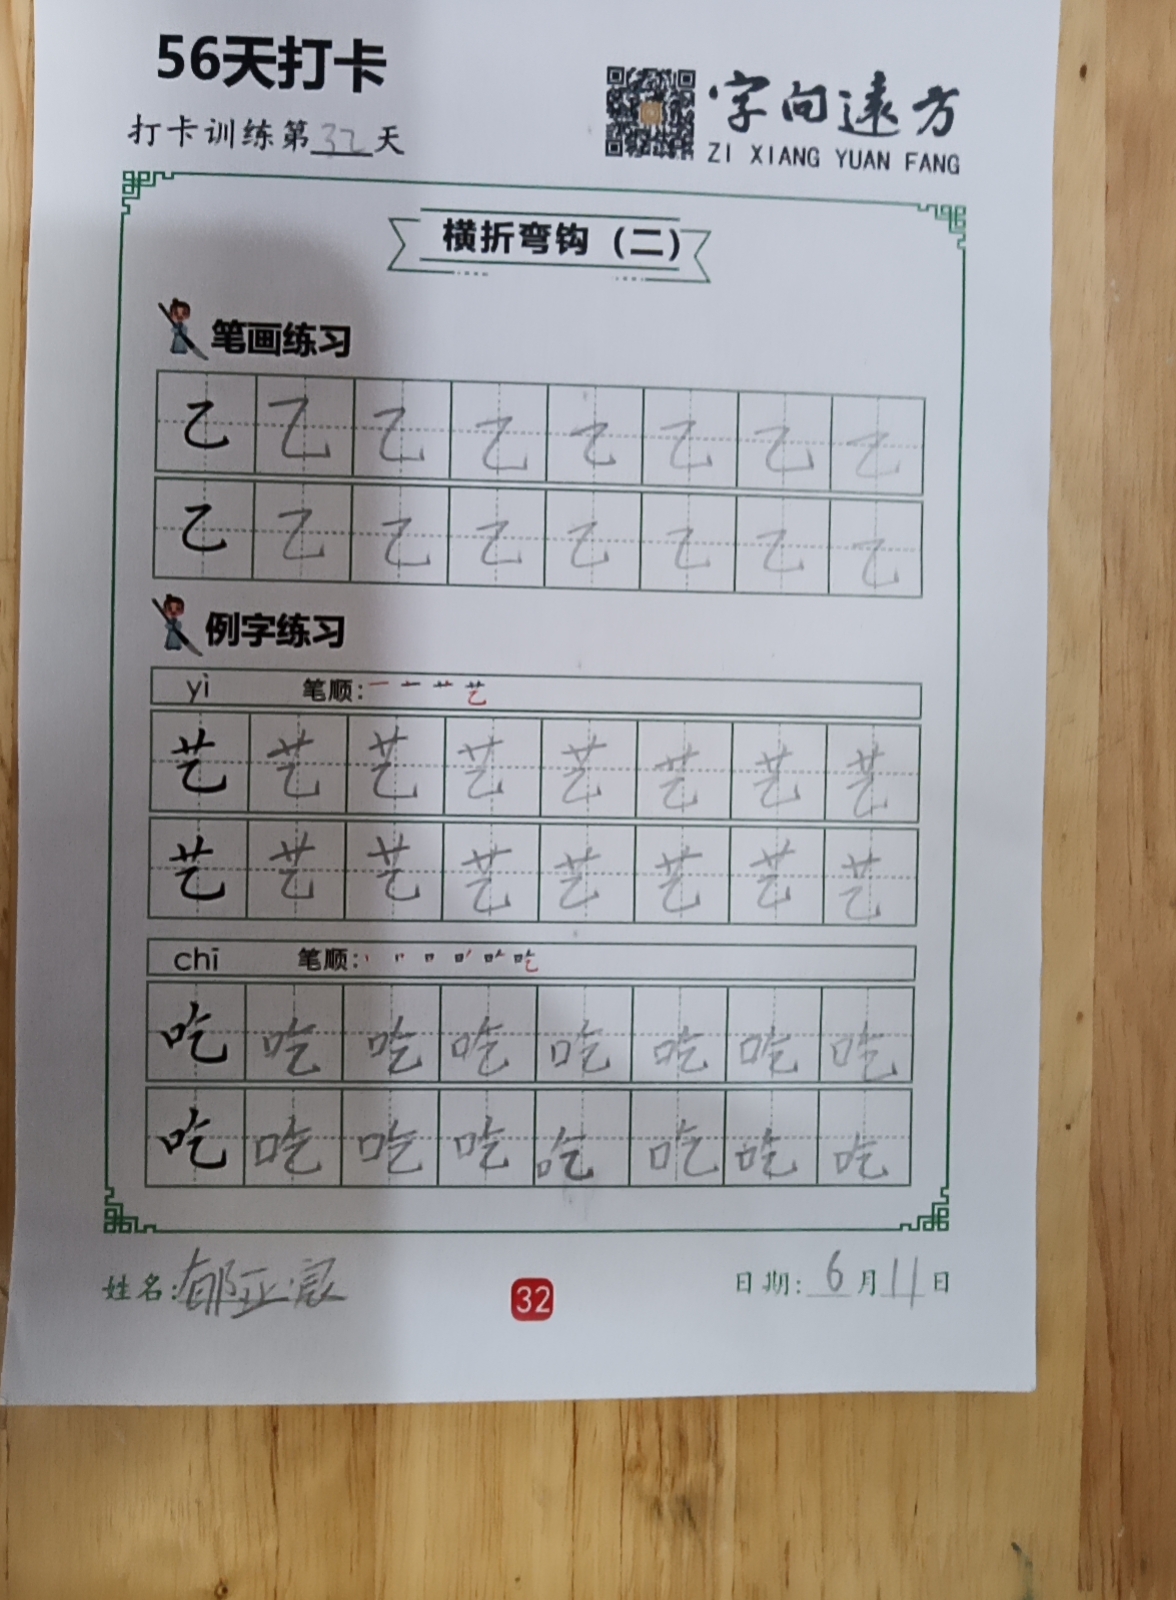 56天打卡
字向远方
打卡训练第32天
ZI XIANG YUAN FANG
横折弯钩（二）
笔画练习
乙乙乙乙乙乙乙乙
乙乙乙乙乙乙乙乙
例字练习
yì 笔顺:一 艹 艺
艺艺艺艺艺艺艺艺
艺艺艺艺艺艺艺艺
chī 笔顺: 口 吃
吃吃吃吃吃吃吃吃
吃吃吃吃吃吃吃吃
姓名:郁亚 32 日期: 6月11日